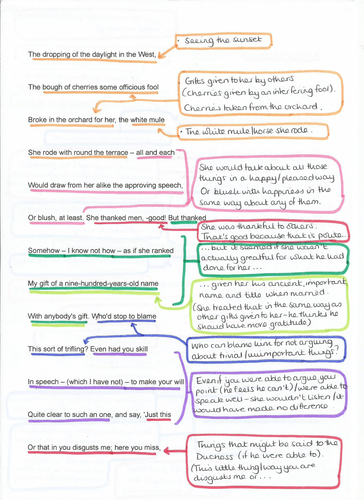 · Seeing the sunset
The dropping of the daylight in the West,
The bough of cherries some officious fool
Gifts given to her by others
(cherries given by an interfering fool).
Cherries taken from the orchard.
Broke in the orchard for her, the white mule
· The white mule/horse she rode.
She rode with round the terrace – all and each
She would talk about all those
things in a happy/pleased way
Or blush with happiness in the
same way about any of them.
Would draw from her alike the approving speech,
Or blush, at least. She thanked men, -good! But thanked
She was thankful to others.
That's good because that is polite.
Somehow – I know not how – as if she ranked
... but it seemed if she wasn't
actually greatful for what he had
done for her ...
My gift of a nine-hundred-years-old name
... given her his ancient, important
name and title when married.
(She treated that in the same way as
other gifts given to her – he thinks he
should have more gratitude)
With anybody's gift. Who'd stop to blame
This sort of trifling? Even had you skill
Who can blame him for not arguing
about trivial/unimportant things?
In speech – (which I have not) – to make your will
Even if you were able to argue your
point (he feels he can't)/were able to
speak well – she wouldn't listen/it
would have made no difference
Quite clear to such an one, and say, 'Just this
Or that in you disgusts me; here you miss,
Things that might be said to the
Duchess (if he were able to).
(This little thing/way you are
disgusts me or...